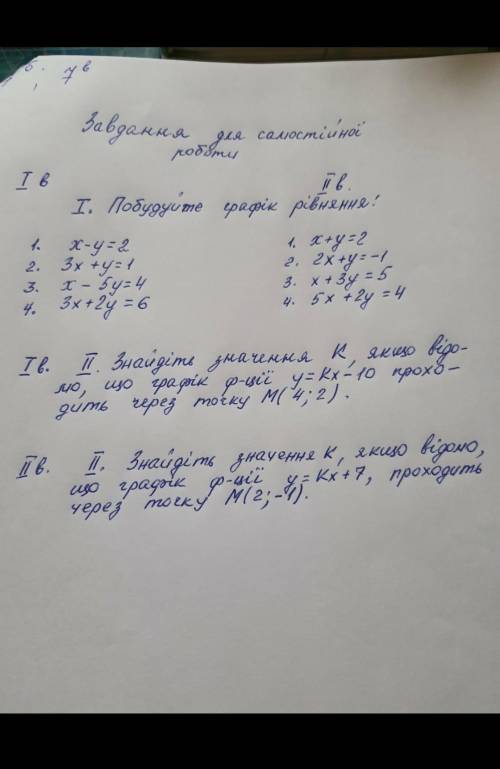 7 в
Завдання для самостійної
роботи
I в
II в.
I. Побудуйте графік рівняння:
1. x-y=2
2. 3x+y=1
3. x-5y=4
4. 3x+2y=6
1. x+y=2
2. 2x+y=-1
3. x+3y=5
4. 5x+2y=4
I в. II. Знайдіть значення K, якщо відо-
мо, що графік ф-ції y=Kx-10 прохо-
дить через точку M(4;2).
II в. II. Знайдіть значення K, якщо відомо,
що графік ф-ції y=Kx+7, проходить
через точку M(2;-1).